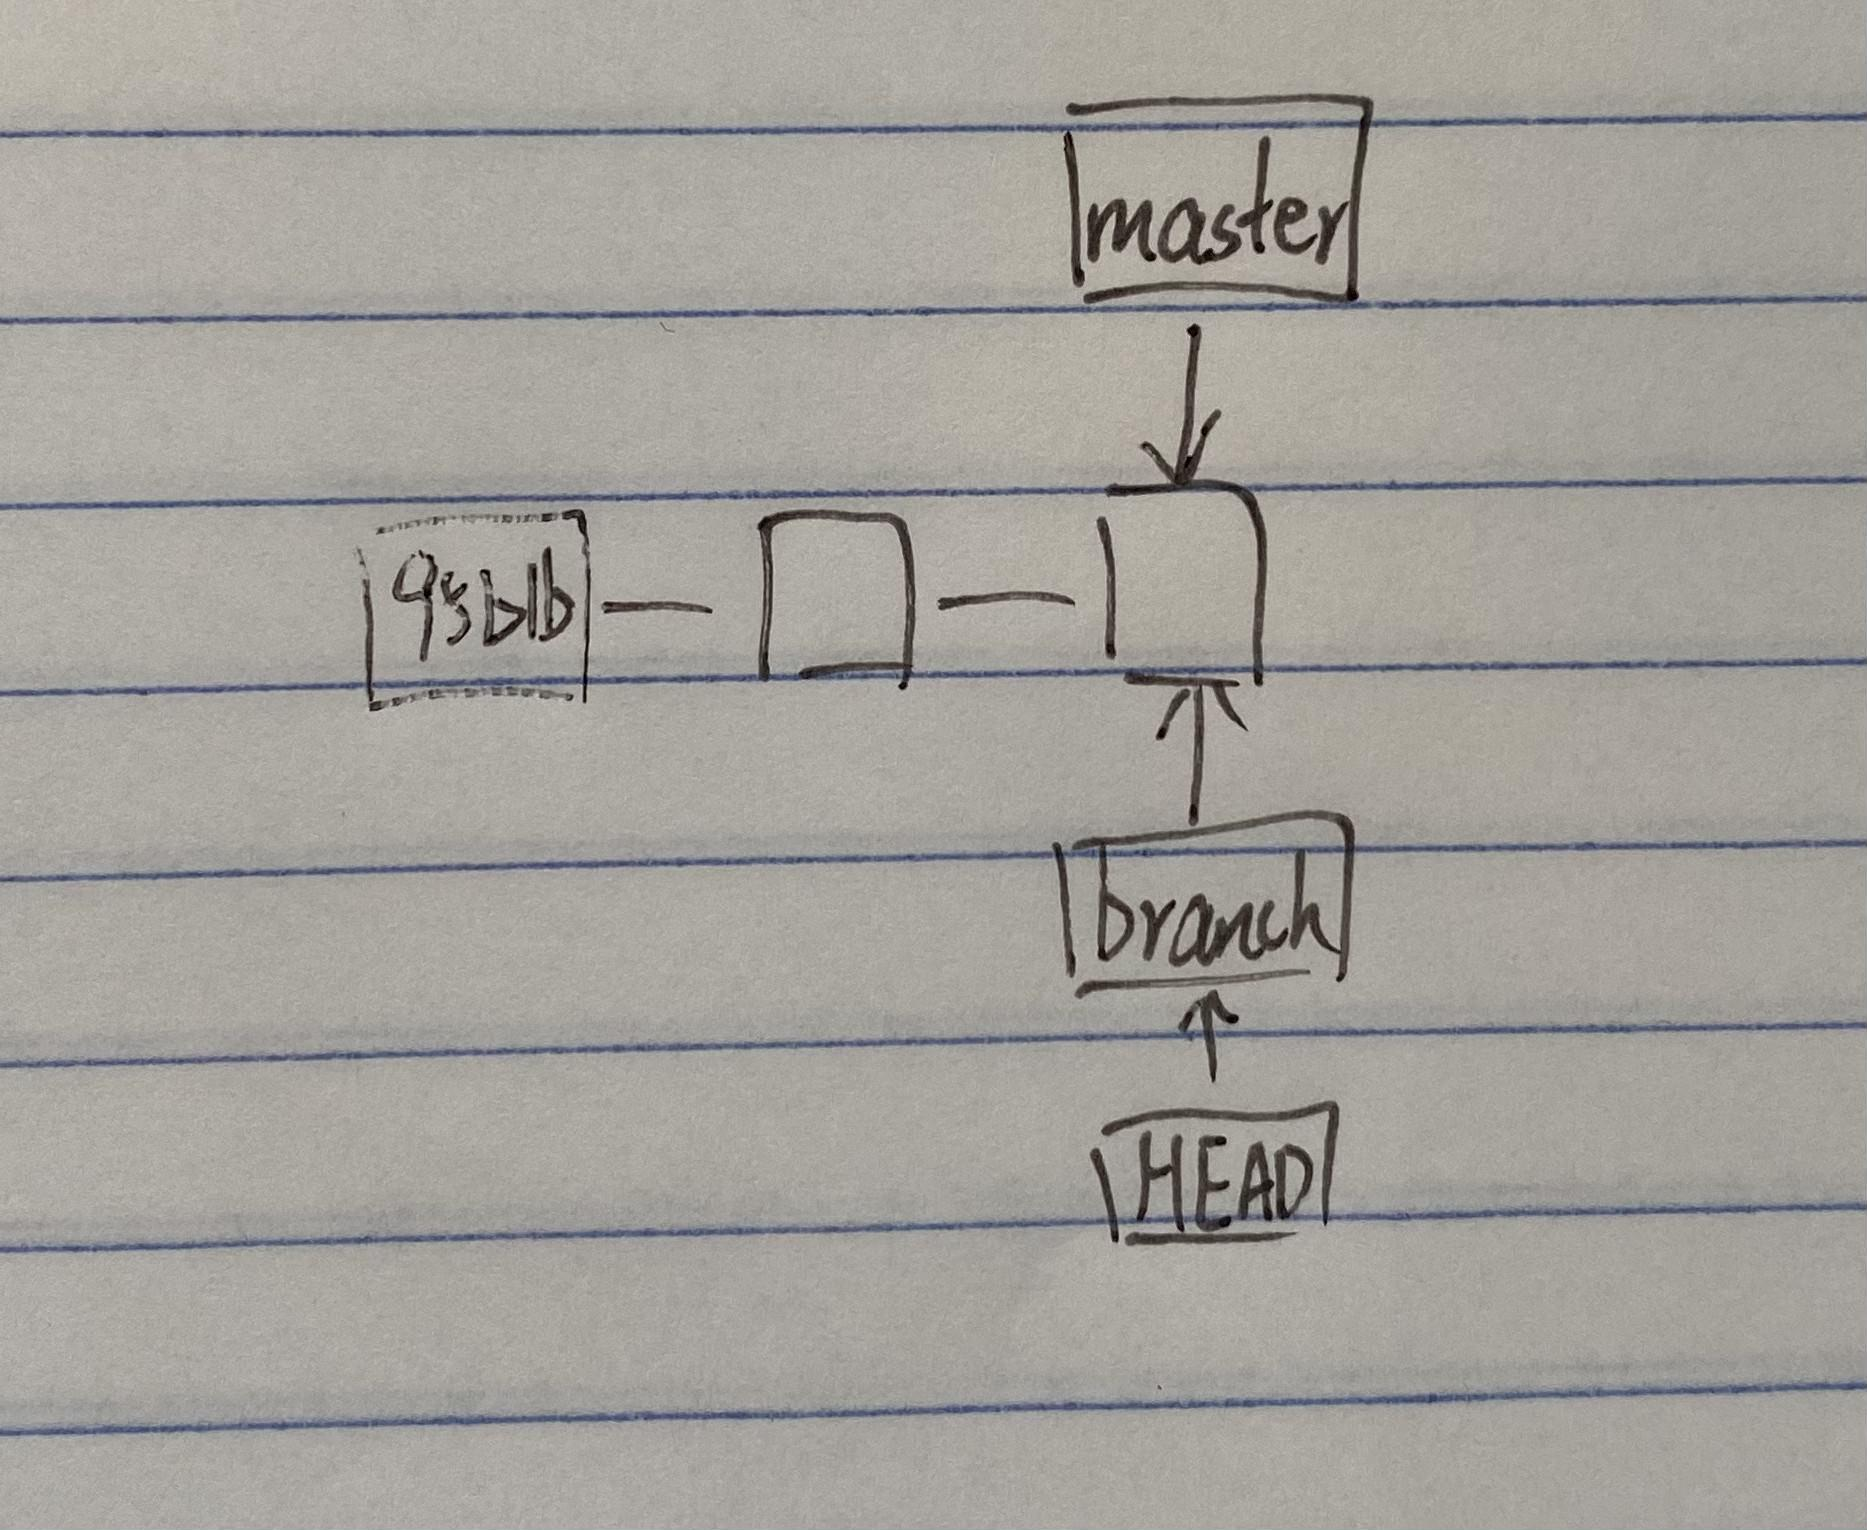 master
9sblb
branch
HEAD